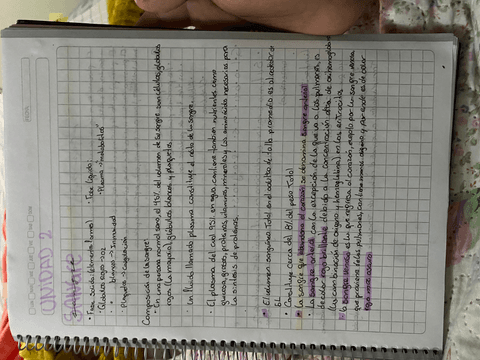 UNIDAD 2
SANGRE
• Fase sólida (elementos formes) • Fase líquida:
• Glóbulos rojos → O2 • Plasma → metabolitos
blancos → Inmunidad
• Plaquetas → Coagulación
Composición de la sangre
• En una persona normal sana, el 45% del volumen de su sangre son células, glóbulos
rojos (la mayoría), glóbulos blancos y plaquetas.
Un fluido llamado plasma constituye el resto de la sangre.
• El plasma del cual 95% es agua, contiene también nutrientes como
glucosa, grasas, proteínas, vitaminas, minerales y los aminoácidos necesarios para
la síntesis de proteínas.
• El volumen sanguíneo total en el adulto de talla promedio es alrededor
6L
• Constituye cerca del 8% del peso total
• La sangre que abandona el corazón se denomina sangre arterial
• La sangre arterial con la excepción de la que va a los pulmones, es
de color rojo brillante debido a la concentración alta de oxihemoglobina
(la combinación de oxígeno y hemoglobina) en los eritrocitos
• la sangre venosa es la que regresa al corazón, excepto por la sangre venosa
que proviene de los pulmones, contiene menos oxígeno, y por ende es de color
rojo más oscuro